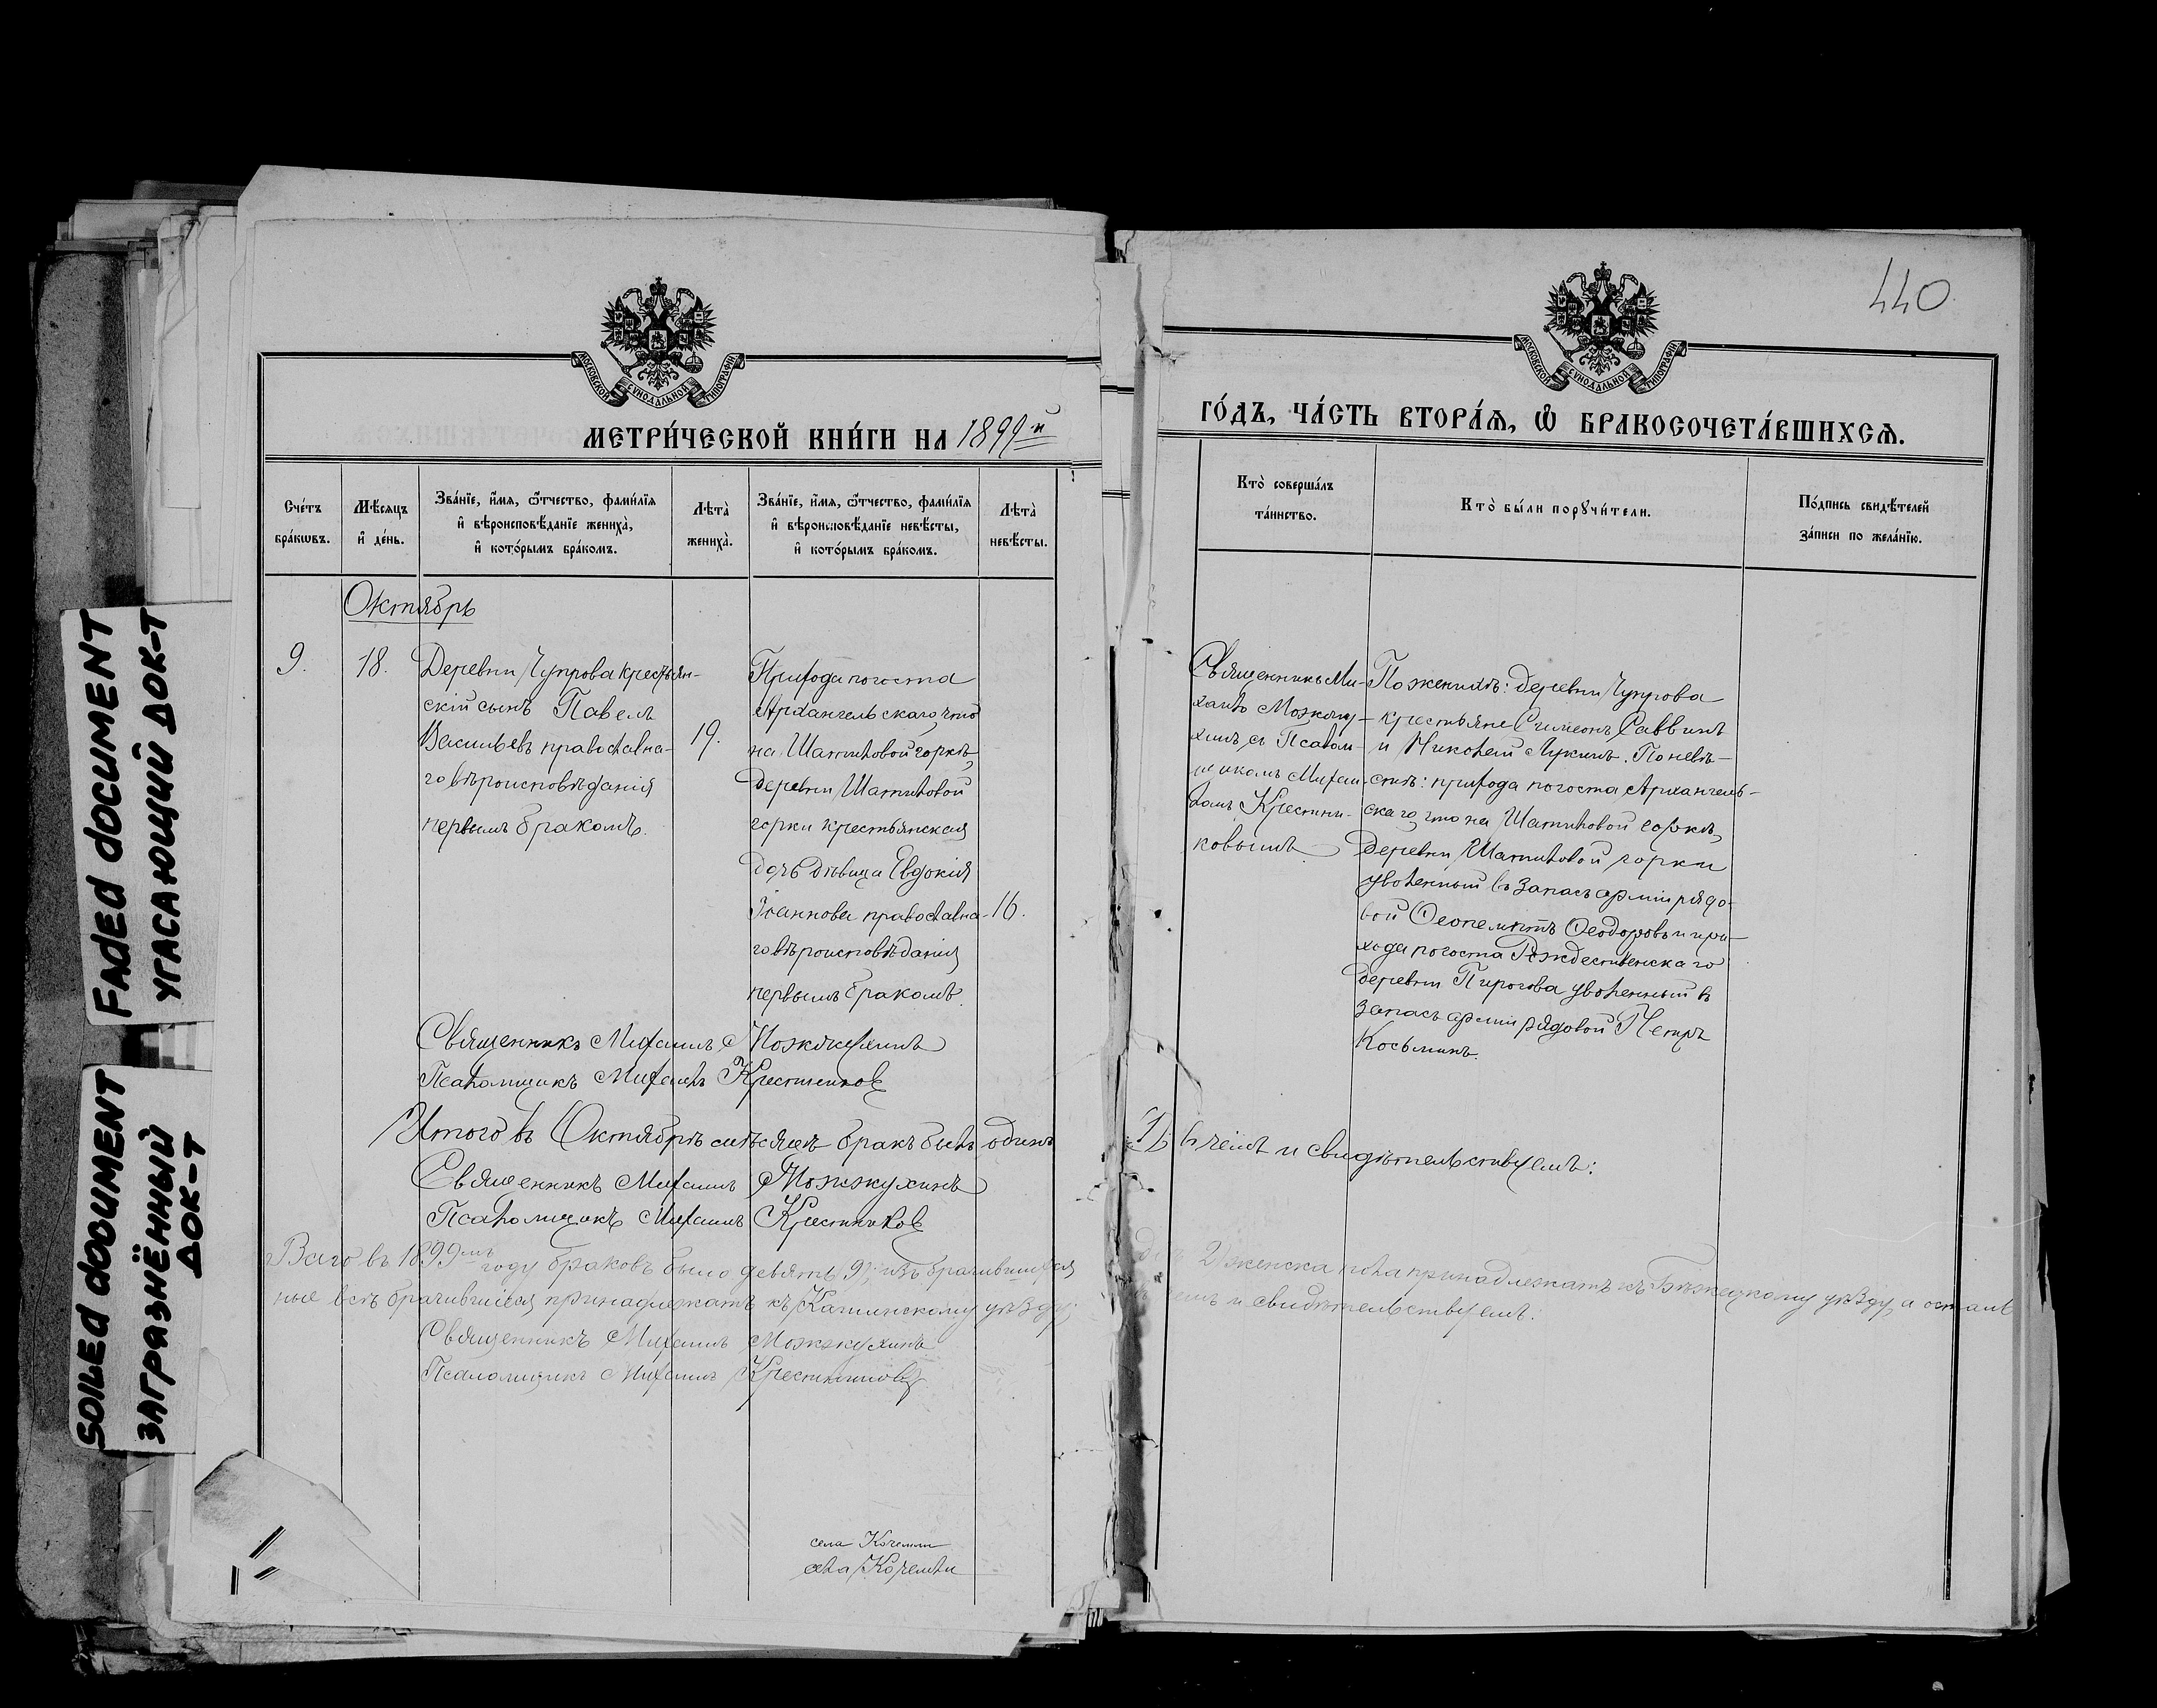 440
МЕТРИ́ЧЕСКОЙ КНИ́ГИ НА 1899й
ГО́ДЪ, ЧА́СТЬ ВТОРА́Я, Ѽ БРАКОСОЧЕТА́ВШИХСЯ.
МОСКОВСКОЙ СѴНОДАЛЬНОЙ ТИПОГРАФІИ
МОСКОВСКОЙ СѴНОДАЛЬНОЙ ТИПОГРАФІИ
Сче́тъ
бра́кѡвъ.
Мѣ́сяцъ
и҆ де́нь.
Зва́нїе, и҆́мя, ѻ҆́тчество, фами́лїя
и҆ вѣроисповѣ́данїе жениха̀,
и҆ кото́рымъ бра́комъ.
Лѣта̀
жениха̀.
Зва́нїе, и҆́мя, ѻ҆́тчество, фами́лїя
и҆ вѣроисповѣ́данїе невѣ́сты,
и҆ кото́рымъ бра́комъ.
Лѣта̀
невѣ́сты.
Кто̀ соверша́лъ
та́инство.
Кто̀ бы́ли порꙋчи́тели.
По́дпись свидѣ́телей
за́писи по жела́нїю.
Октябрь
9.
18.
Деревни Чупрова крестьян-
скій сынъ Павелъ
Васильевъ православна-
го вѣроисповѣданія
первымъ бракомъ.
19.
Прихода погоста
Архангельскаго, что
на Шатиловой горкѣ,
деревни Шатиловой
горки крестьянская
дочь дѣвица Евдокія
Іоаннова православна-
го вѣроисповѣданія
первымъ бракомъ.
16.
Священникъ Ми-
хаилъ Можжу-
хинъ съ Псалом-
щикомъ Михаи-
ломъ Крестни-
ковымъ.
По женихѣ: деревни Чупрова
крестьяне Симеонъ Саввинъ
и Николай Лукинъ. По невѣ-
стѣ: прихода погоста Архангель-
скаго, что на Шатиловой горкѣ,
деревни Шатиловой горки
уволенный въ запасъ арміи рядо-
вой Ѳеопемптъ Ѳеодоровъ и при-
хода погоста Рождественскаго
деревни Пирогова уволенный въ
запасъ арміи рядовой Петръ
Косьминъ.
Священникъ Михаилъ Можжухинъ
Псаломщикъ Михаилъ Крестниковъ
Итого въ Октябрѣ мѣсяцѣ бракъ былъ одинъ 1, въ чемъ и свидѣтельствуемъ:
Священникъ Михаилъ Можжухинъ
Псаломщикъ Михаилъ Крестниковъ
Всего въ 1899мъ году браковъ было девять 9; изъ брачившихся 2 женска пола принадлежатъ къ Бѣжецкому уѣзду, а осталь
ные всѣ брачившіеся принадлежатъ къ Кашинскому уѣзду; и свидѣтельствуемъ:
Священникъ Михаилъ Можжухинъ
Псаломщикъ Михаилъ Крестниковъ
села Кочемли
села Кочемли
FADED DOCUMENT
УГАСАЮЩИЙ ДОК-Т
SOILED DOCUMENT
ЗАГРАЗНЁННЫЙ
ДОК-Т